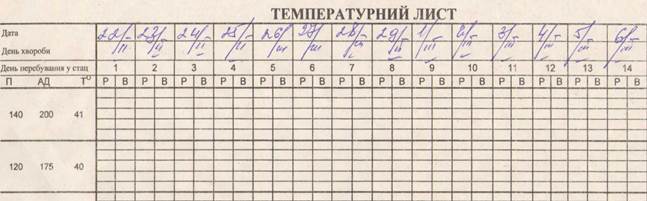 ТЕМПЕРАТУРНИЙ ЛИСТ
Дата 22/II 23/II 24/II 25/II 26/II 27/II 28/II 29/II 1/III 2/III 3/III 4/III 5/III 6/III
День хвороби
День перебування у стац 1 2 3 4 5 6 7 8 9 10 11 12 13 14
П АД Т° Р В Р В Р В Р В Р В Р В Р В Р В Р В Р В Р В Р В Р В Р В
140 200 41
120 175 40